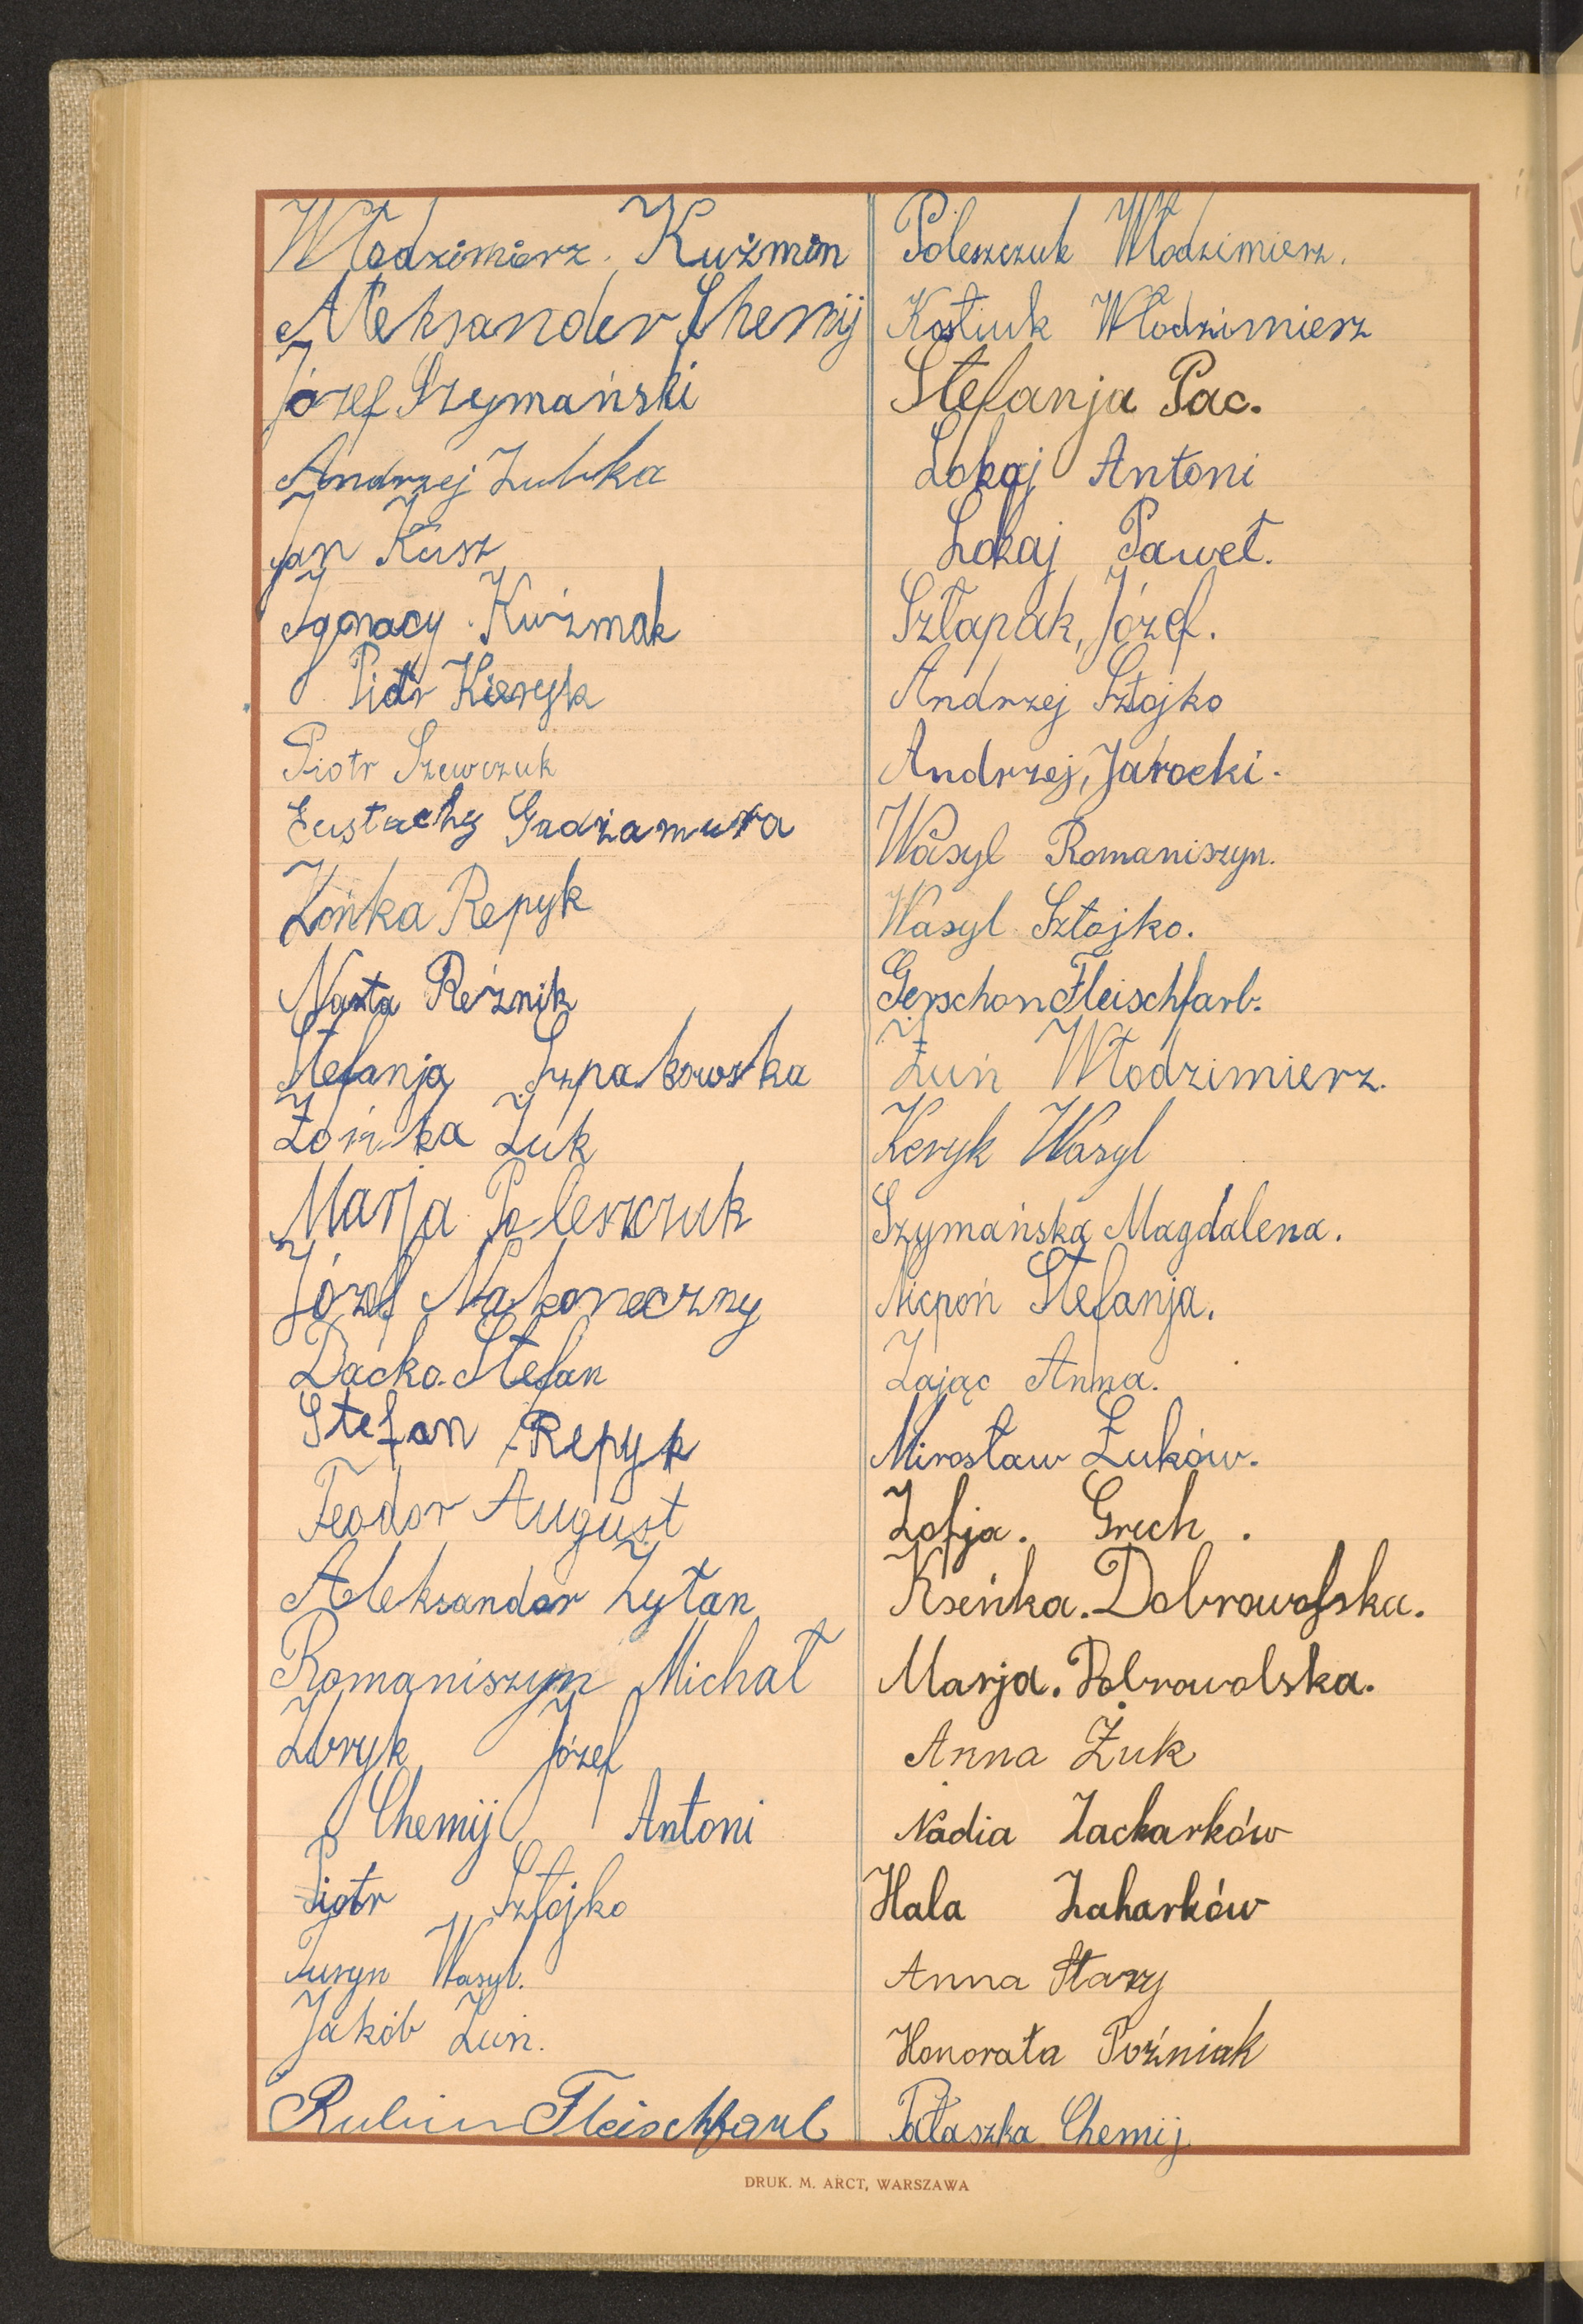 Włodzimierz. Kuźmin
Aleksander Chemij
Józef Szymański
Andrzej Zubka
Jan Kusz
Ignacy Kuźmak
Piotr Kieryk
Piotr Szewczuk
Eustachy Gadzamura
Zońka Repyk
Nasta Reźnik
Stefanja Szpakowska
Zońka Żuk
Marja Poleszczuk
Józef Nakoneczny
Dacko Stefan
Stefan Repyk
Teodor August
Aleksander Zytan
Romaniszyn Michał
Zbryk Józef
Chemij Antoni
Piotr Sztojko
Turyn Wasyl.
Jakób Zuń.
Rubin Fleischfarb
Poleszczuk Włodzimierz.
Kostiuk Włodzimierz
Stefanja Pac.
Lokaj Antoni
Lokaj Paweł.
Szłapak, Józef.
Andrzej Sztojko
Andrzej, Jarocki.
Wasyl Romaniszyn.
Wasyl Sztojko.
Gerschon Fleischfarb.
Żuń Włodzimierz.
Keryk Wasyl
Szymańska Magdalena.
Nicpoń Stefanja.
Zając Anna.
Mirosław Żuków.
Zofja. Grech.
Kseńka. Dobrowolska.
Marja. Dobrowolska.
Anna Żuk
Nadia Zacharków
Hala Zaharków
Anna Stary
Honorata Poźniak
Pałaszka Chemij
DRUK. M. ARCT, WARSZAWA